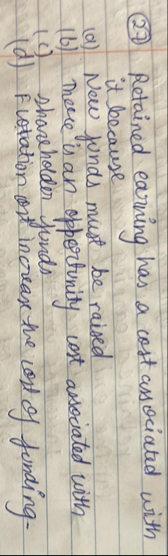 (27) Retained earning has a cost associated with
it because
(a) New funds must be raised
(b) There is an opportunity cost associated with
(c) Shareholder funds
(d) Flotation cost increase the cost of funding-